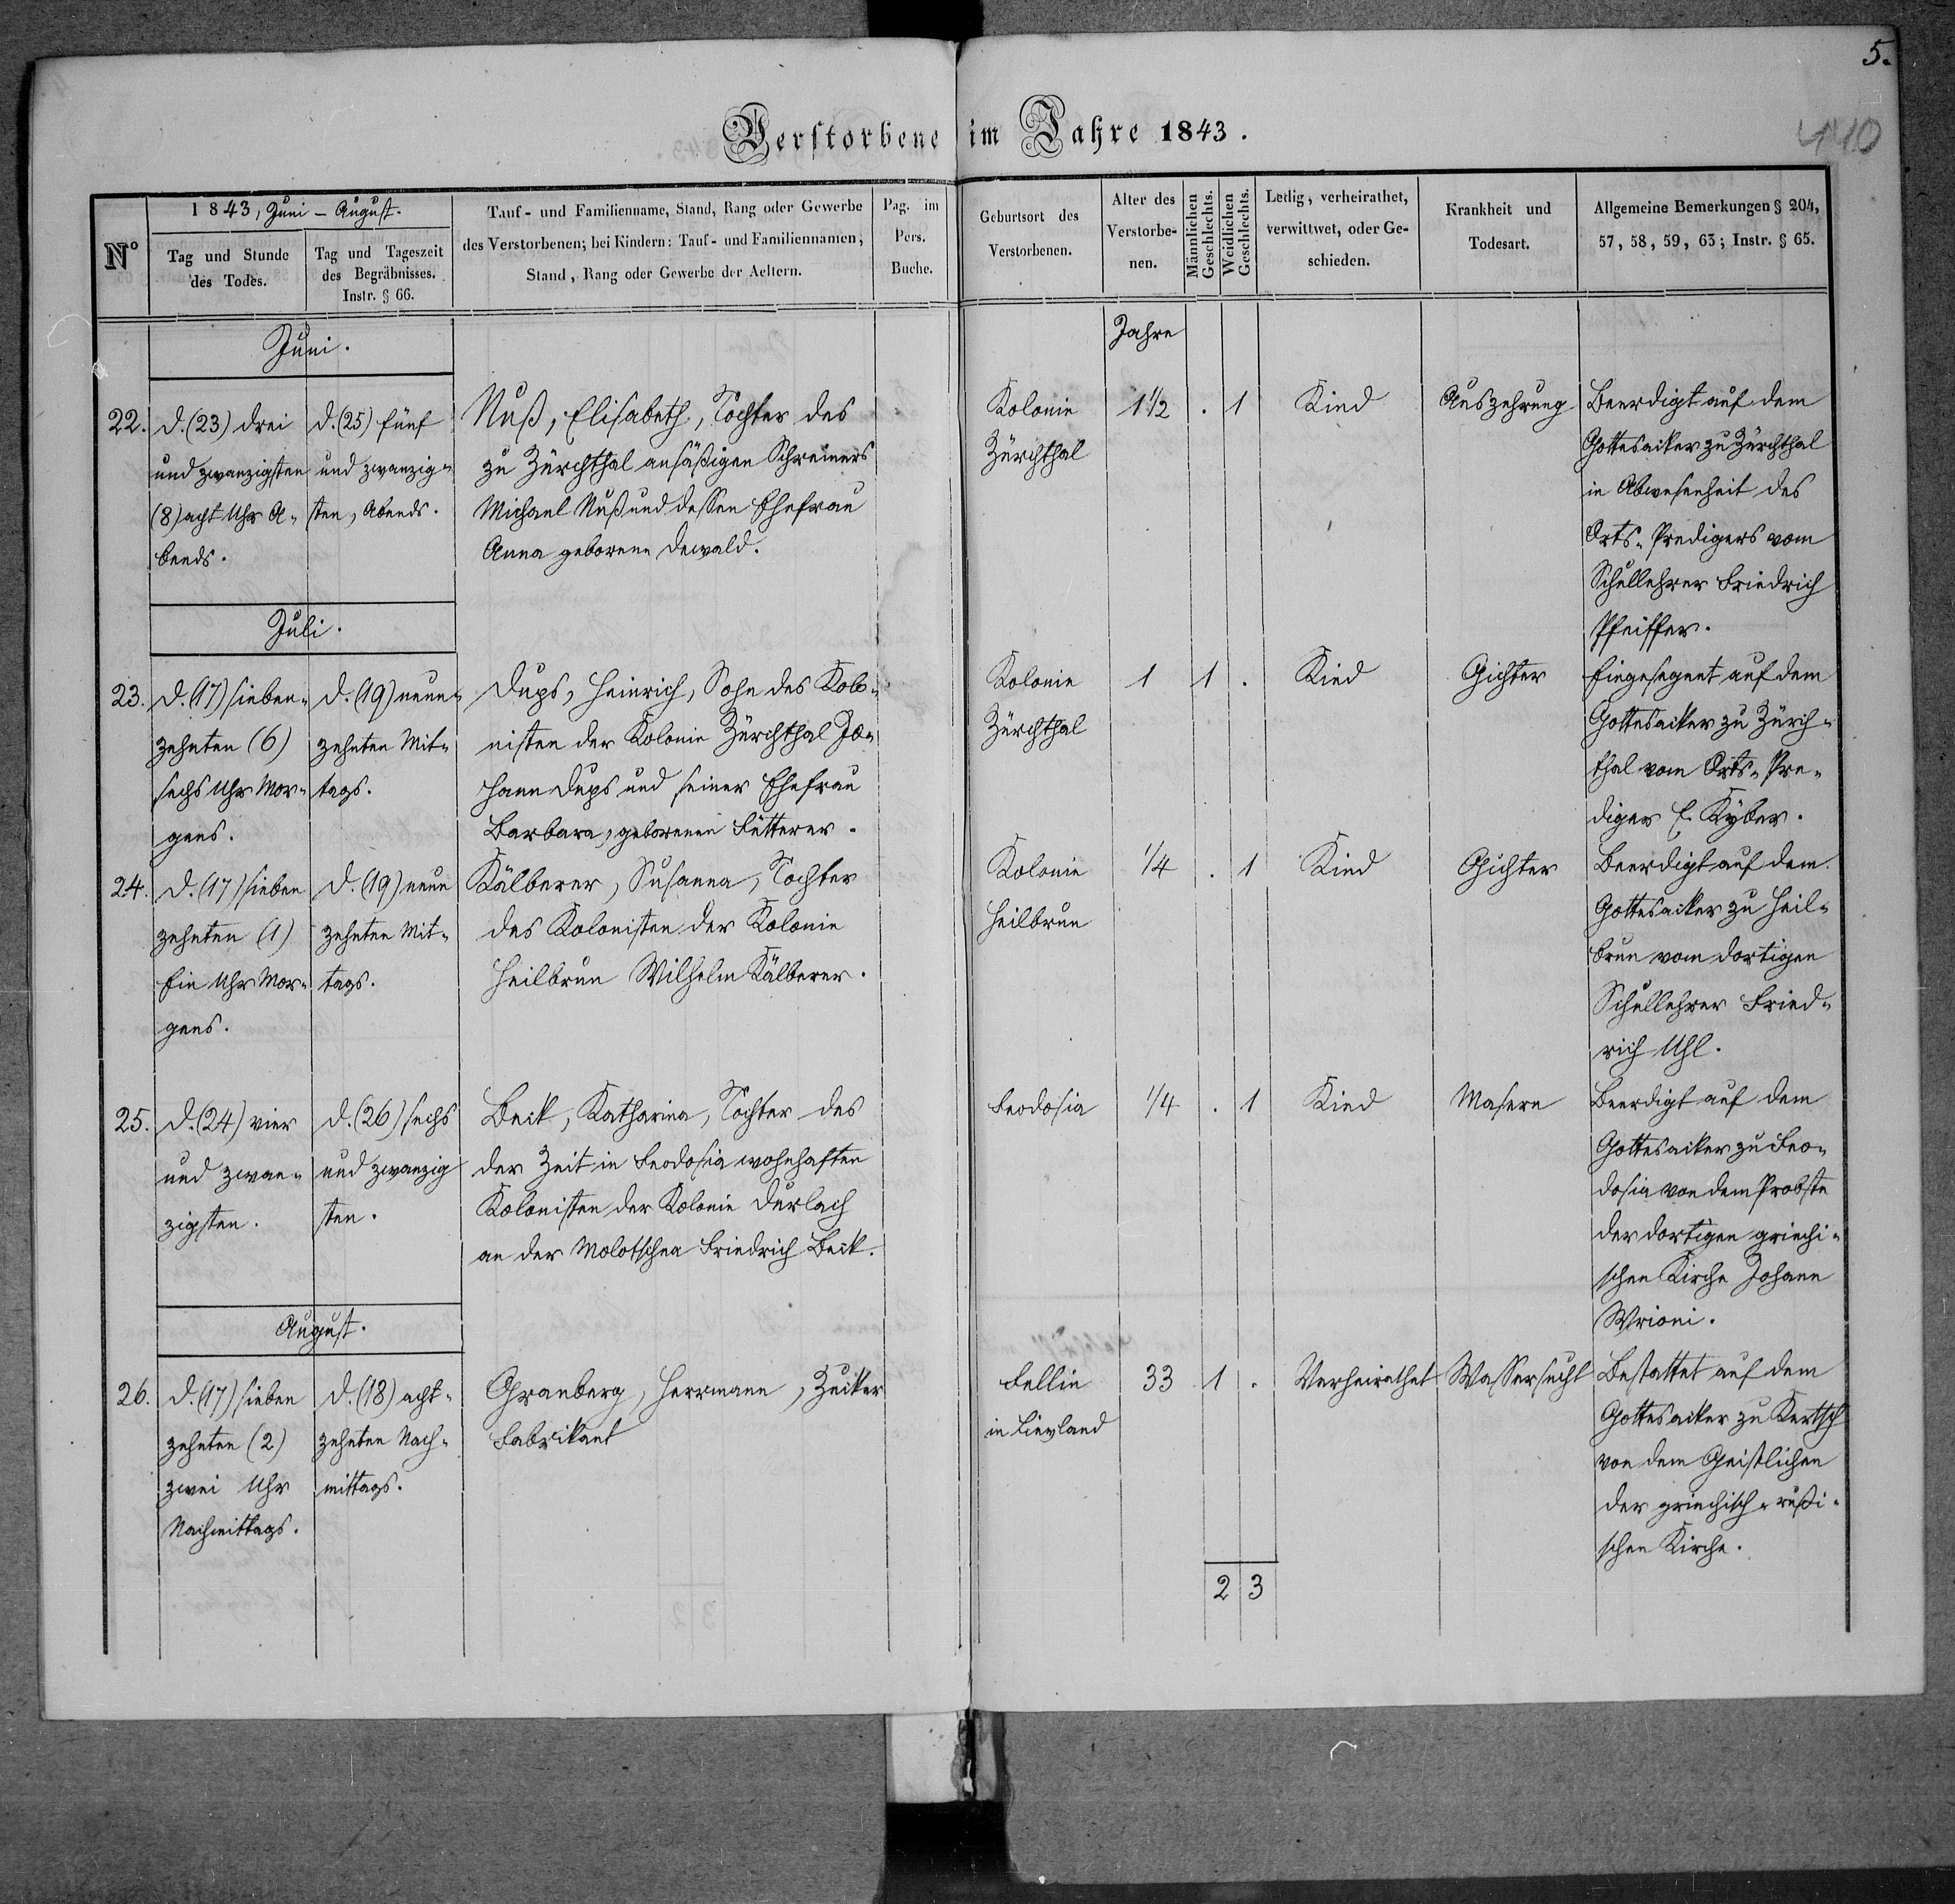 5.
440
Verstorbene im Jahre 1843.
No
1843, Juni – August.
Tag und Stunde
des Todes.
Tag und Tageszeit
des Begräbnisses.
Instr. § 66.
Tauf- und Familienname, Stand, Rang oder Gewerbe
des Verstorbenen; bei Kindern: Tauf- und Familiennamen,
Stand, Rang oder Gewerbe der Aeltern.
Pag. im
Pers.
Buche.
Geburtsort des
Verstorbenen.
Alter des
Verstorbe-
nen.
Männlichen
Geschlechts.
Weidlichen
Geschlechts.
Ledig, verheirathet,
verwittwet, oder Ge-
schieden.
Krankheit und
Todesart.
Allgemeine Bemerkungen § 204,
57, 58, 59, 63; Instr. § 65.
Juni.
Jahre
22.
d. (23) drei
und zwanzigsten
(8) acht Uhr A-
bends.
d. (25) fünf
und zwanzig-
sten, Abends.
Nuß, Elisabeth, Tochter des
zu Zürchthal ansäßigen Schreiners
Michael Nuß und dessen Ehefrau
Anna geborene Dewald.
Kolonie
Zürchthal
1 1/2
.
1
Kind
Auszehrung
Beerdigt auf dem
Gottesacker zu Zürchthal
in Abwesenheit des
Orts-Predigers vom
Schullehrer Friedrich
Pfeiffer.
Juli.
23.
d. (17) sieben-
zehnten (6)
sechs Uhr Mor-
gens.
d. (19) neun-
zehnten Mit-
tags.
Dups, Heinrich, Sohn des Kolo-
nisten der Kolonie Zürchthal Jo-
hann Dups und seiner Ehefrau
Barbara, geborenen Fütterer.
Kolonie
Zürchthal
1
1
.
Kind
Gichter
Eingesegent auf dem
Gottesacker zu Zürch-
thal vom Orts-Pre-
diger E. Kyber.
24.
d. (17) sieben
zehnten (1)
Ein Uhr Mor-
gens.
d. (19) neun
zehnten Mit-
tags.
Kälberer, Susanna, Tochter
des Kolonisten der Kolonie
Heilbrun Wilhelm Kälberer.
Kolonie
Heilbrun
1/4
.
1
Kind
Gichter
Beerdigt auf dem
Gottesacker zu Heil-
brun vom dortigen
Schullehrer Fried-
rich Uhl.
25.
d. (24) vier
und zwan-
zigsten.
d. (26) sechs
und zwanzig
sten.
Beck, Katharina, Tochter des
der Zeit in Feodosia wohnhaften
Kolonisten der Kolonie Durlach
an der Molotschna Friedrich Beck.
Feodosia
1/4
.
1
Kind
Masern
Beerdigt auf dem
Gottesacker zu Feo-
dosia von dem Probste
der dortigen griechi-
schen Kirche Johann
Wrioni.
August.
26.
d. (17) sieben
zehnten (2)
zwei Uhr
Nachmittags.
d. (18) acht-
zehnten Nach-
mittags.
Granberg, Herrmann, Zucker
Fabrikant
Fellin
in Lievland
33
1
.
Verheirathet
Wassersucht
Bestattet auf dem
Gottesacker zu Kertsch
von dem Geistlichen
der griechisch-rußi-
schen Kirche.
2 3